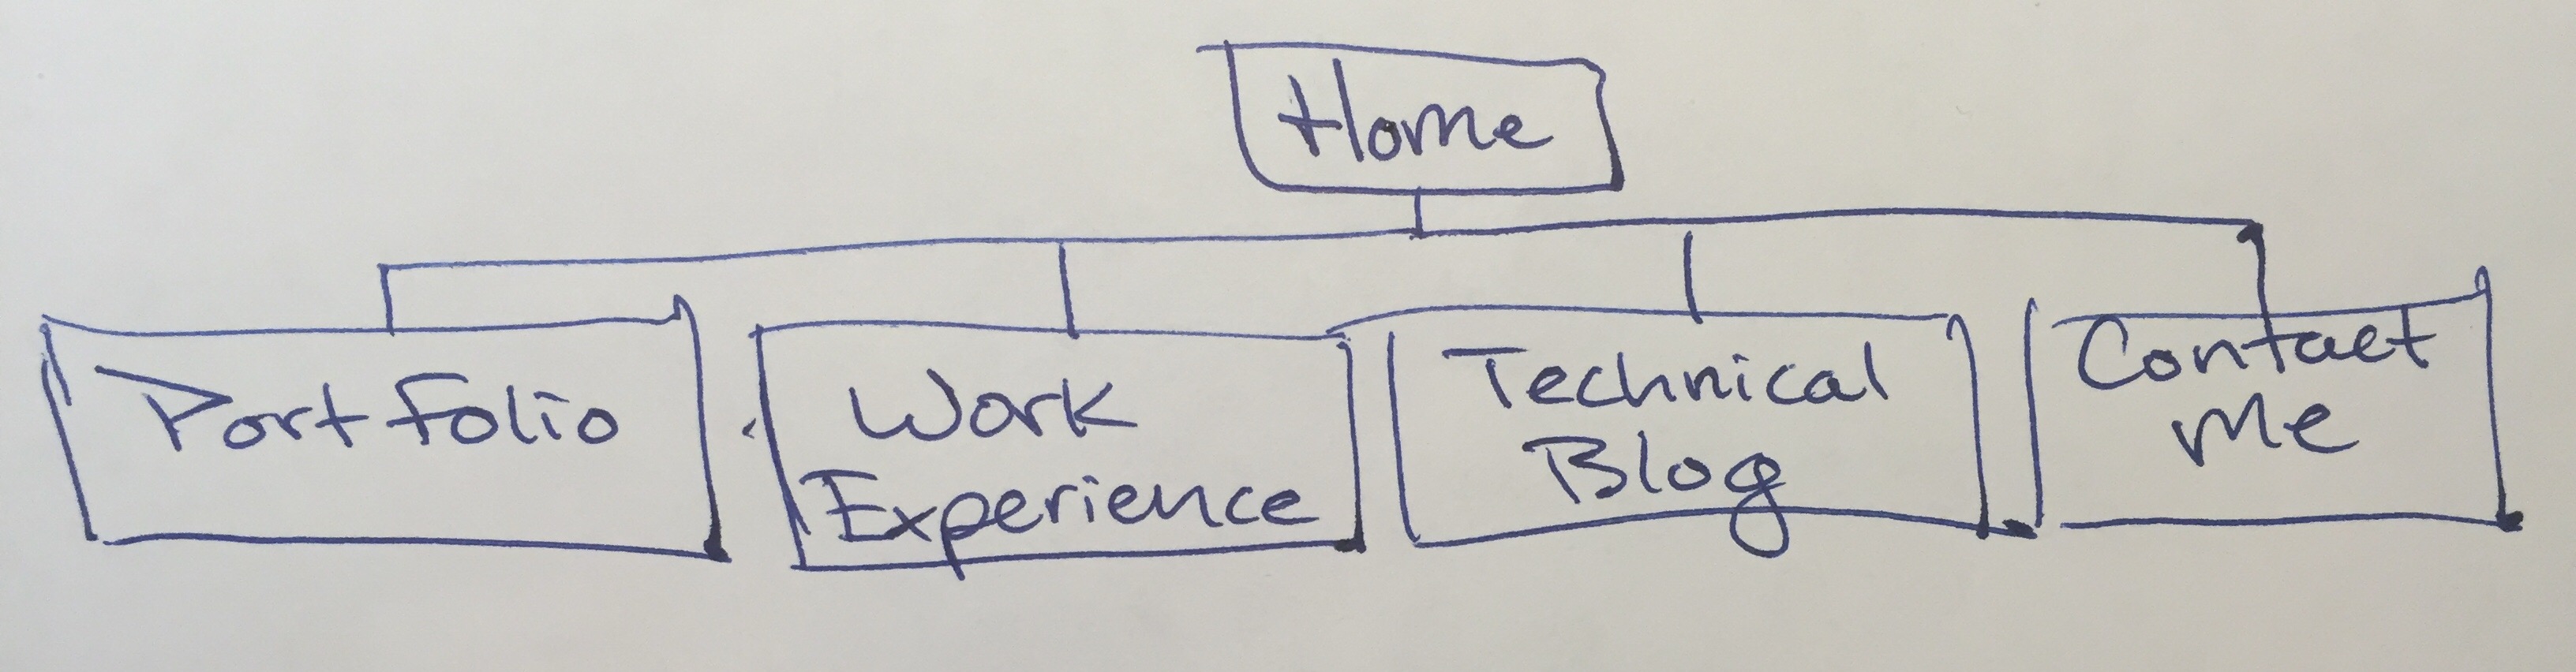 Home
Portfolio
Work
Experience
Technical
Blog
Contact
Me